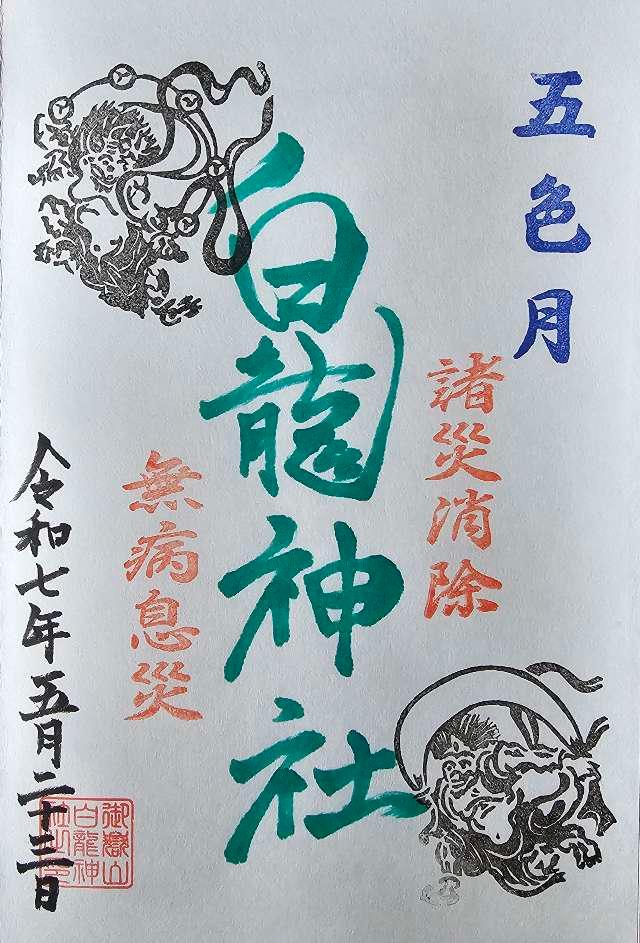 五色月
諸災消除
白龍神社
無病息災
令和七年五月二十三日
御嶽山
白龍神